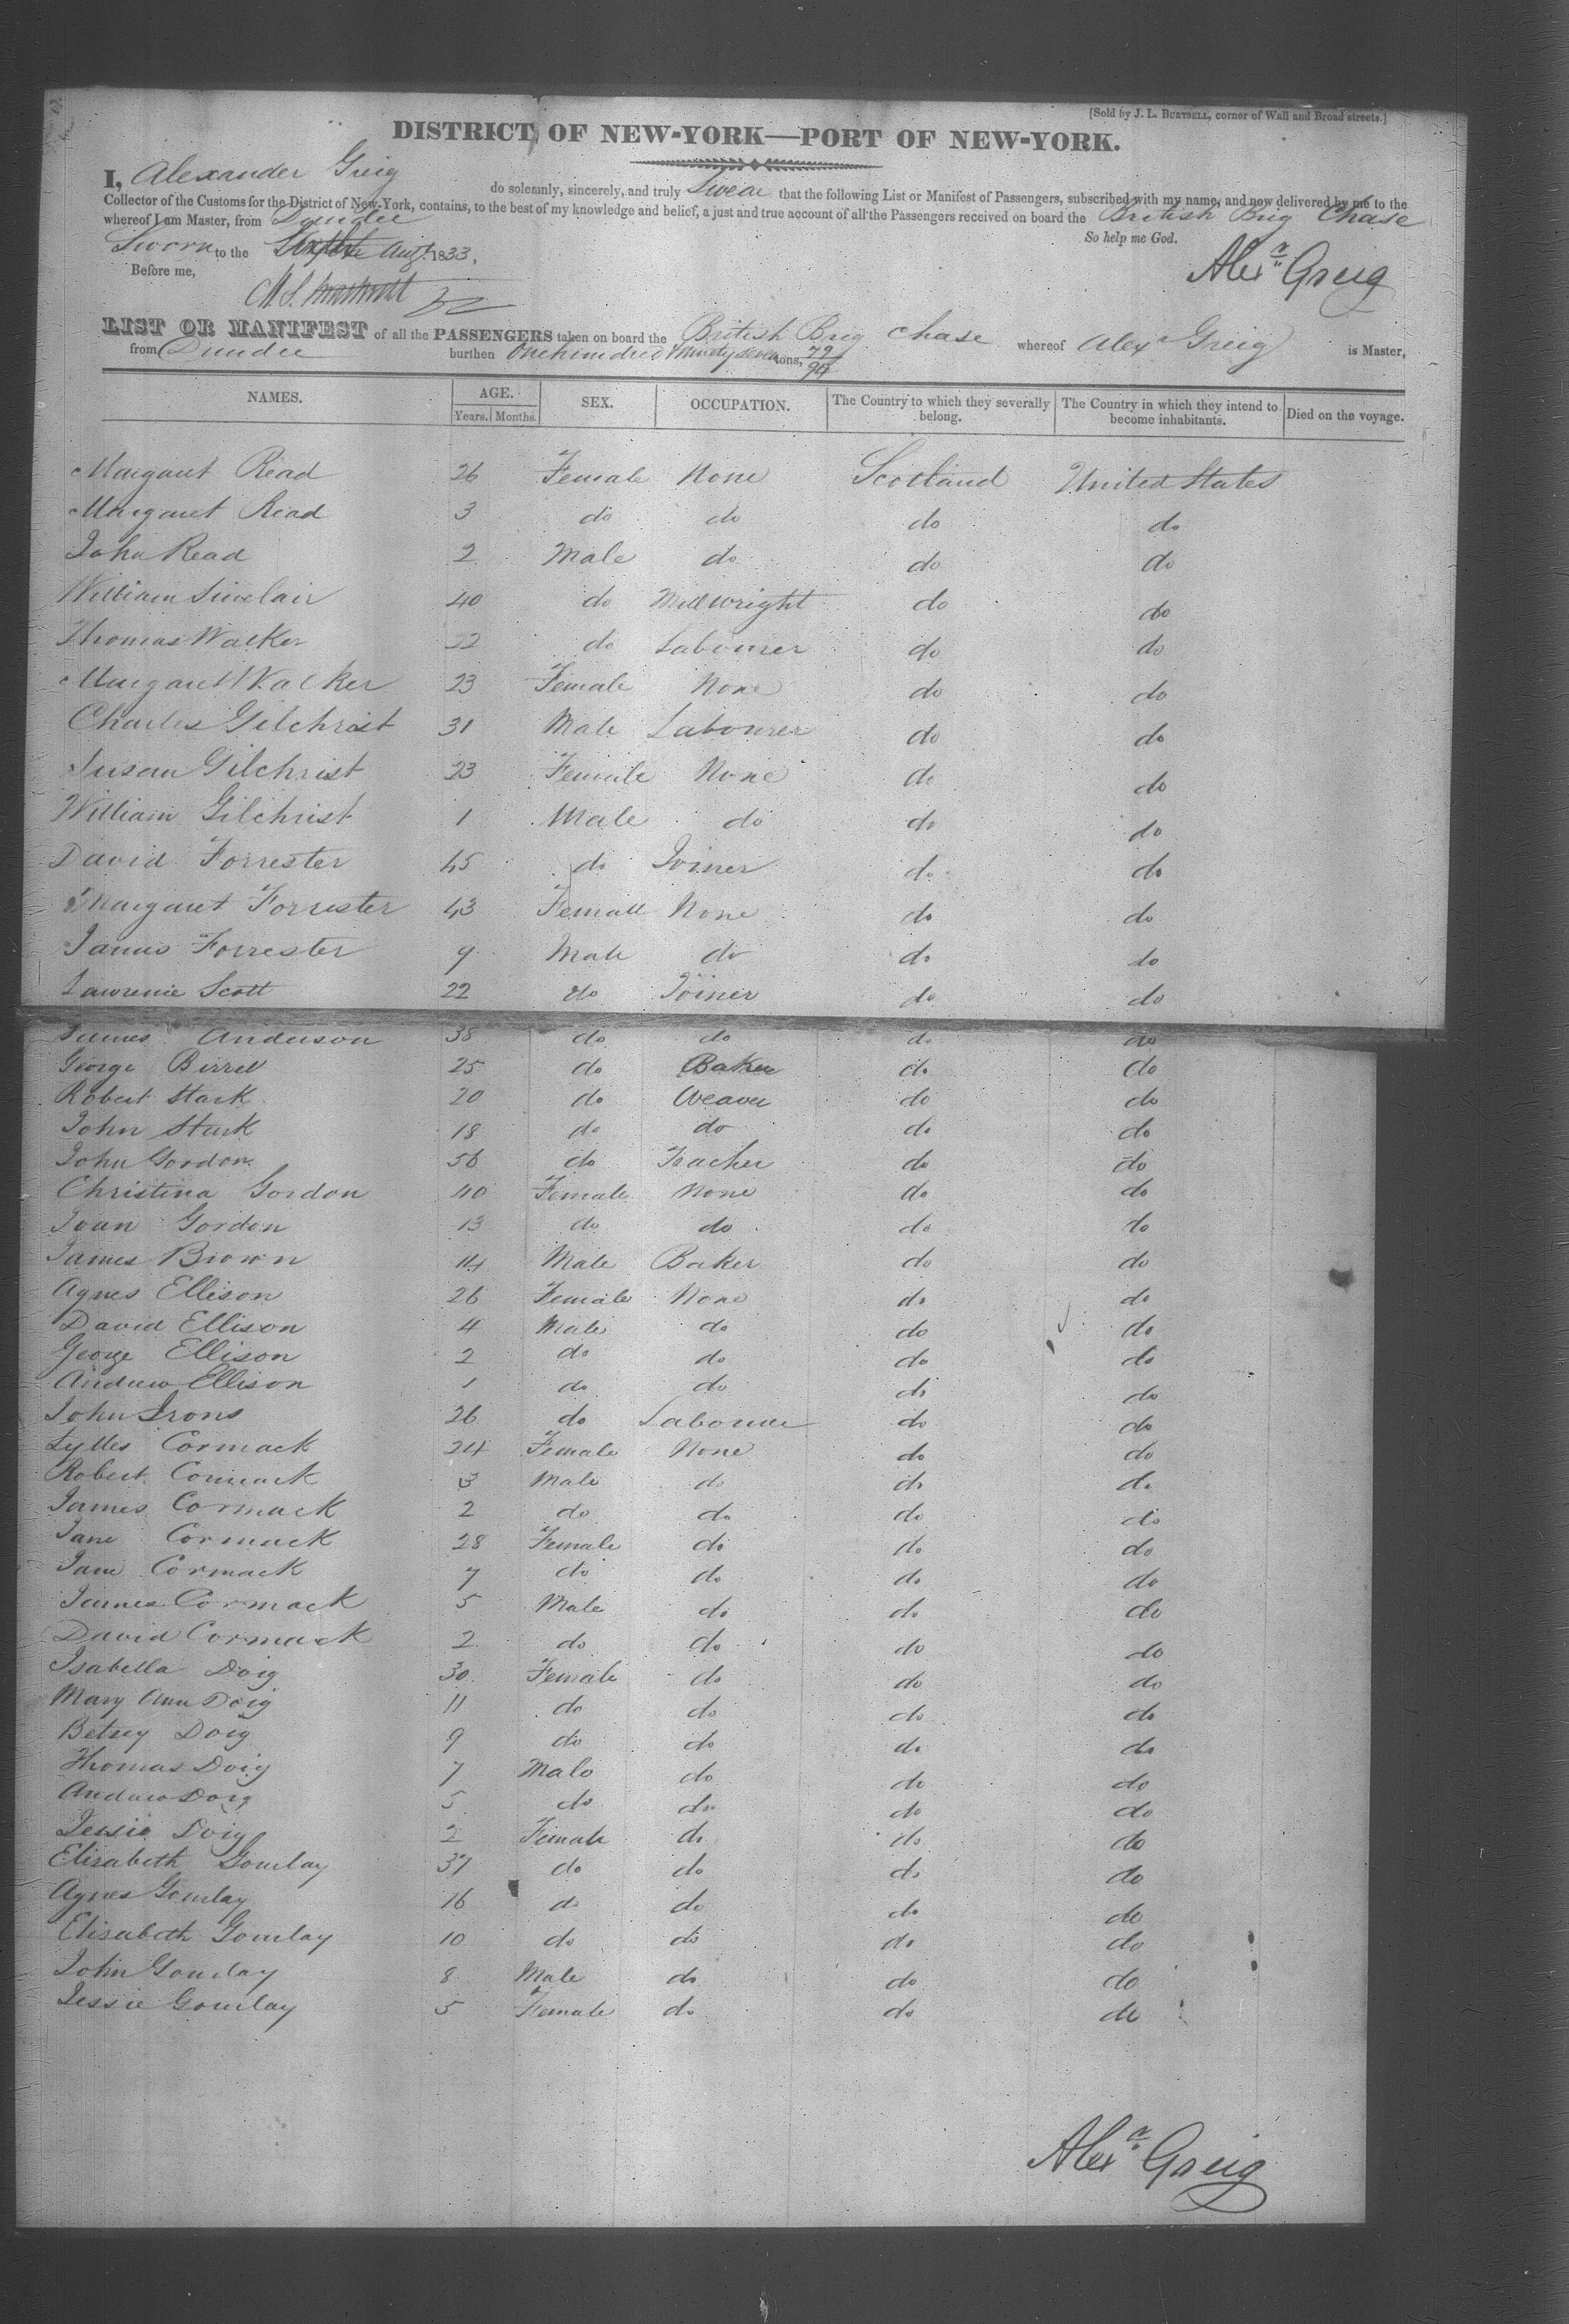 [Sold by J. L. BURTSELL, corner of Wall and Broad streets.]
DISTRICT OF NEW-YORK—PORT OF NEW-YORK.
I, Alexander Greig do solemnly, sincerely, and truly Swear that the following List or Manifest of Passengers, subscribed with my name, and now delivered by me to the
Collector of the Customs for the District of New-York, contains, to the best of my knowledge and belief, a just and true account of all the Passengers received on board the British Brig Chase
whereof I am Master, from Dundee
So help me God.
Sworn to the Augt. 1833,
Alexr Greig
Before me,
LIST OR MANIFEST of all the PASSENGERS taken on board the British Brig Chase whereof Alexr Greig is Master,
from Dundee burthen One hundred & Ninety seven tons, 79/94
NAMES. AGE. SEX. OCCUPATION. The Country to which they severally belong. The Country in which they intend to become inhabitants. Died on the voyage.
Years. Months.
Margaret Read 26 Female None Scotland United States
Margaret Read 3 do do do do
John Read 2 Male do do do
William Sinclair 40 do Millwright do do
Thomas Walker 22 do Labourer do do
Margaret Walker 23 Female None do do
Charles Gilchrist 31 Male Labourer do do
Susan Gilchrist 23 Female None do do
William Gilchrist 1 Male do do do
David Forrester 45 do Joiner do do
Margaret Forrester 43 Female None do do
James Forrester 9 Male do do do
Lawrence Scott 22 do Joiner do do
James Anderson 38 do do do do
George Birrell 25 do Baker do do
Robert Stark 20 do Weaver do do
John Stark 18 do do do do
John Gordon 56 do Teacher do do
Christina Gordon 40 Female None do do
Joan Gordon 13 do do do do
James Brown 14 Male Baker do do
Agnes Ellison 26 Female None do do
David Ellison 4 Male do do do
George Ellison 2 do do do do
Andrew Ellison 1 do do do do
John Irons 26 do Labourer do do
Cormack 24 Female None do do
Robert Cormack 3 Male do do do
James Cormack 2 do do do do
Jane Cormack 28 Female do do do
Jane Cormack 7 do do do do
James Cormack 5 Male do do do
David Cormack 2 do do do do
Isabella Doig 30 Female do do do
Mary Ann Doig 11 do do do do
Betsey Doig 9 do do do do
Thomas Doig 7 Male do do do
Andrew Doig 5 do do do do
Jessie Doig 2 Female do do do
Elisabeth Gourlay 37 do do do do
Agnes Gourlay 16 do do do do
Elisabeth Gourlay 10 do do do do
John Gourlay 8 Male do do do
Jessie Gourlay 5 Female do do do
Alexr Greig